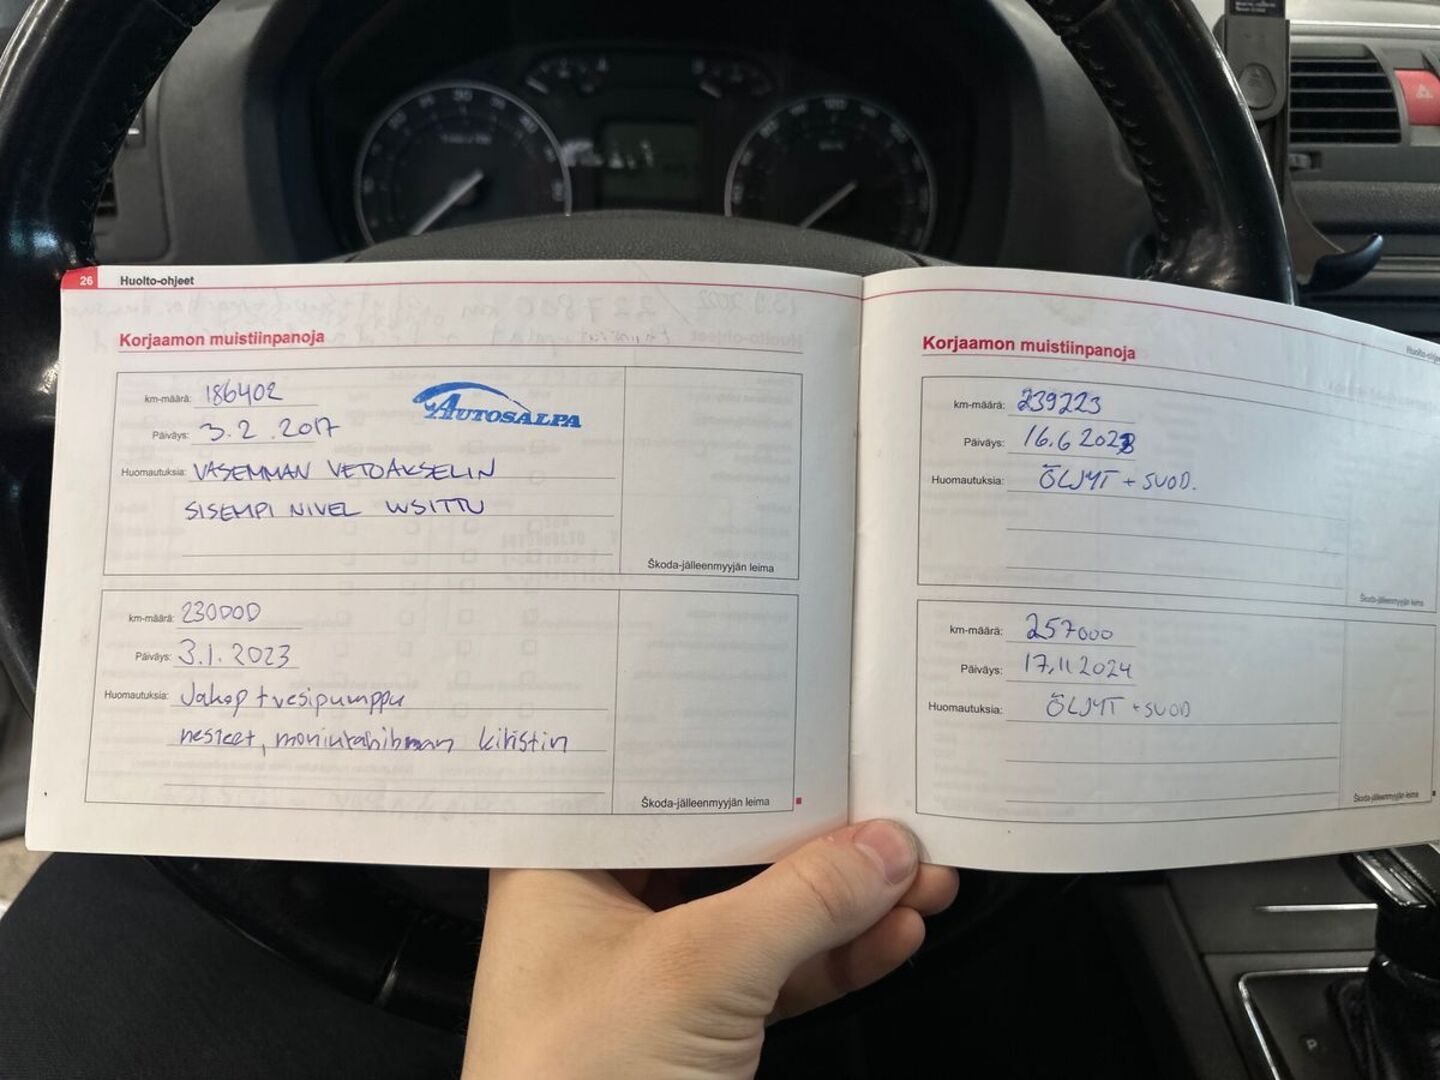 26 Huolto-ohjeet
Korjaamon muistiinpanoja
km-määrä: 186402
AUTOSALPA
Päiväys: 3.2.2017
Huomautuksia: VASEMMAN VETOAKSELIN
SISEMPI NIVEL UUSITTU
Škoda-jälleenmyyjän leima
km-määrä: 230000
Päiväys: 3.1.2023
Huomautuksia: Jakop + vesipumppu
nesteet, moniurahihnan kiristin
Škoda-jälleenmyyjän leima
Korjaamon muistiinpanoja
km-määrä: 239223
Päiväys: 16.6 2023
Huomautuksia: ÖLJYT + SUOD.
Škoda-jälleenmyyjän leima
km-määrä: 257000
Päiväys: 17.11 2024
Huomautuksia: ÖLJYT + SUOD
Škoda-jälleenmyyjän leima
P